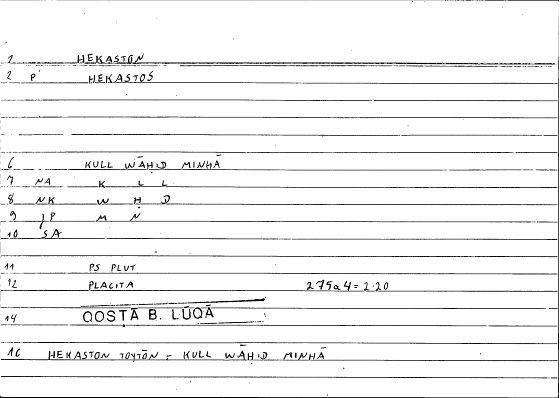 1 HEKASTON
2 P HEKASTOS
6 KULL WĀḤID MINHĀ
7 NA K L L
8 NK W Ḥ D
9 JP M N
10 SA
11 PS PLUT
12 PLACITA 275a4 = 2.20
14 QOSṬĀ B. LŪQĀ
16 HEKASTON TOYTŌN = KULL WĀḤID MINHĀ